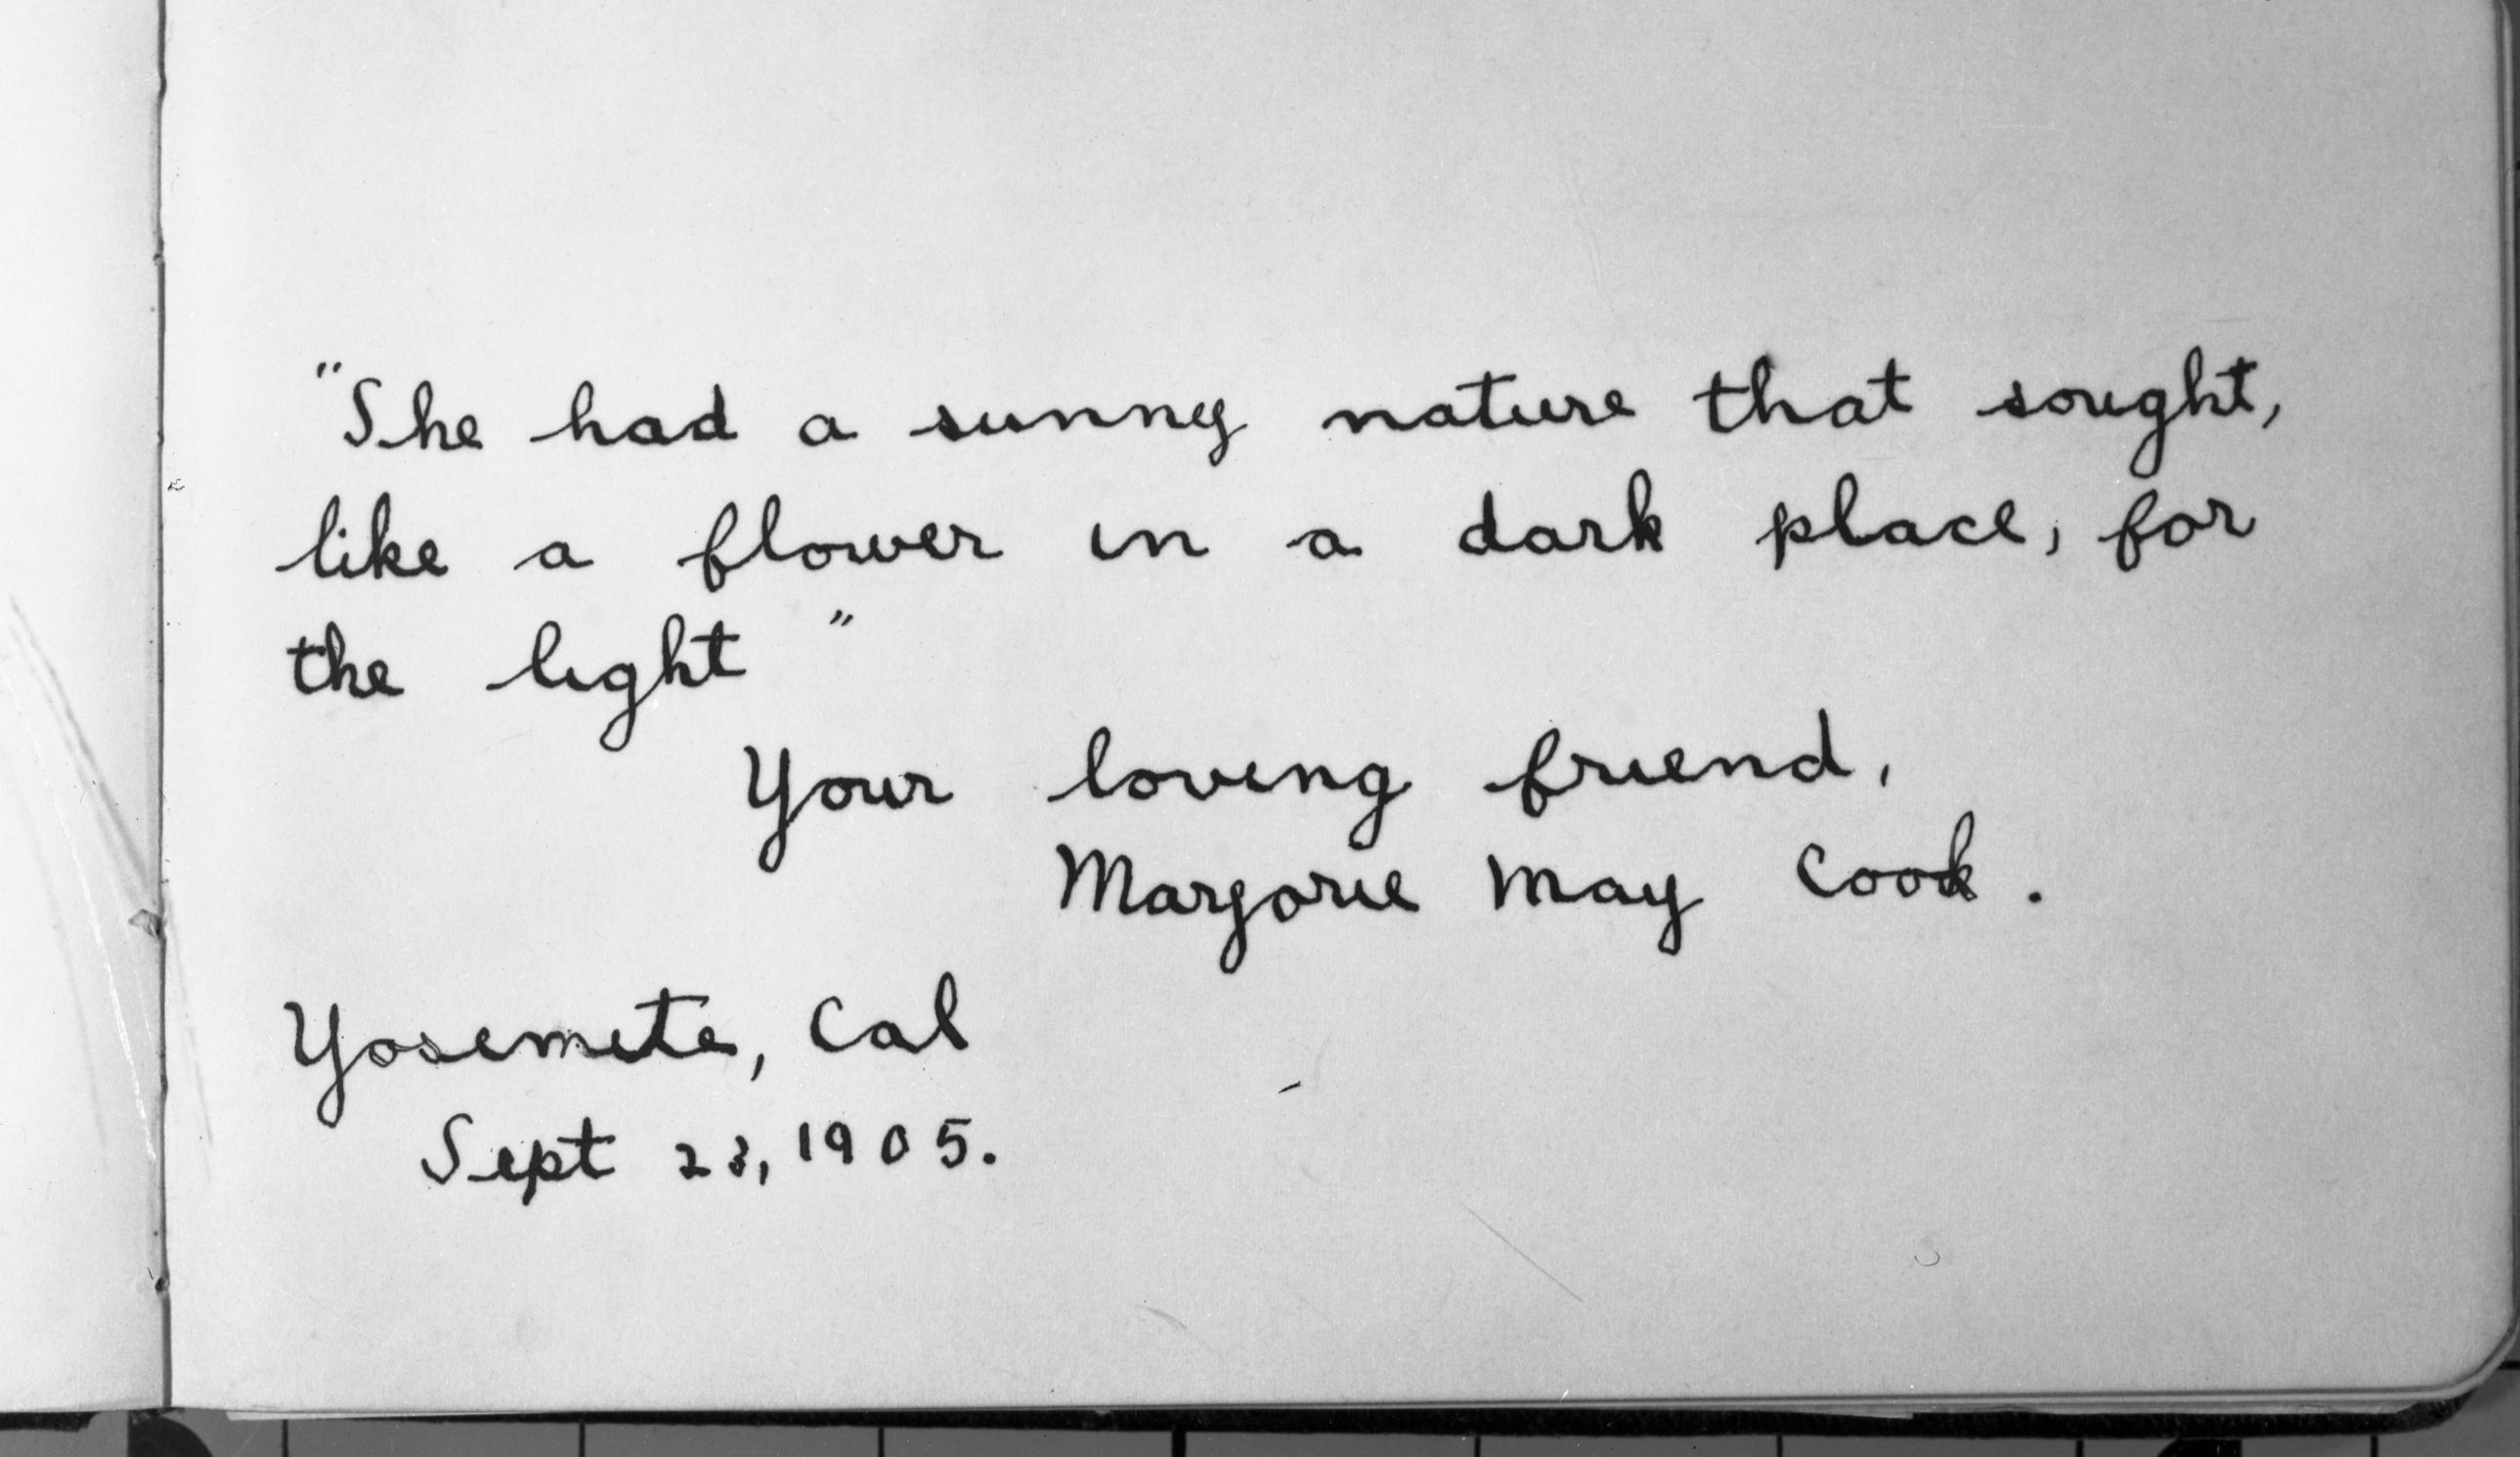 "She had a sunny nature that sought,
like a flower in a dark place, for
the light"
Your loving friend,
Marjorie May Cook.
Yosemite, Cal
Sept 23, 1905.